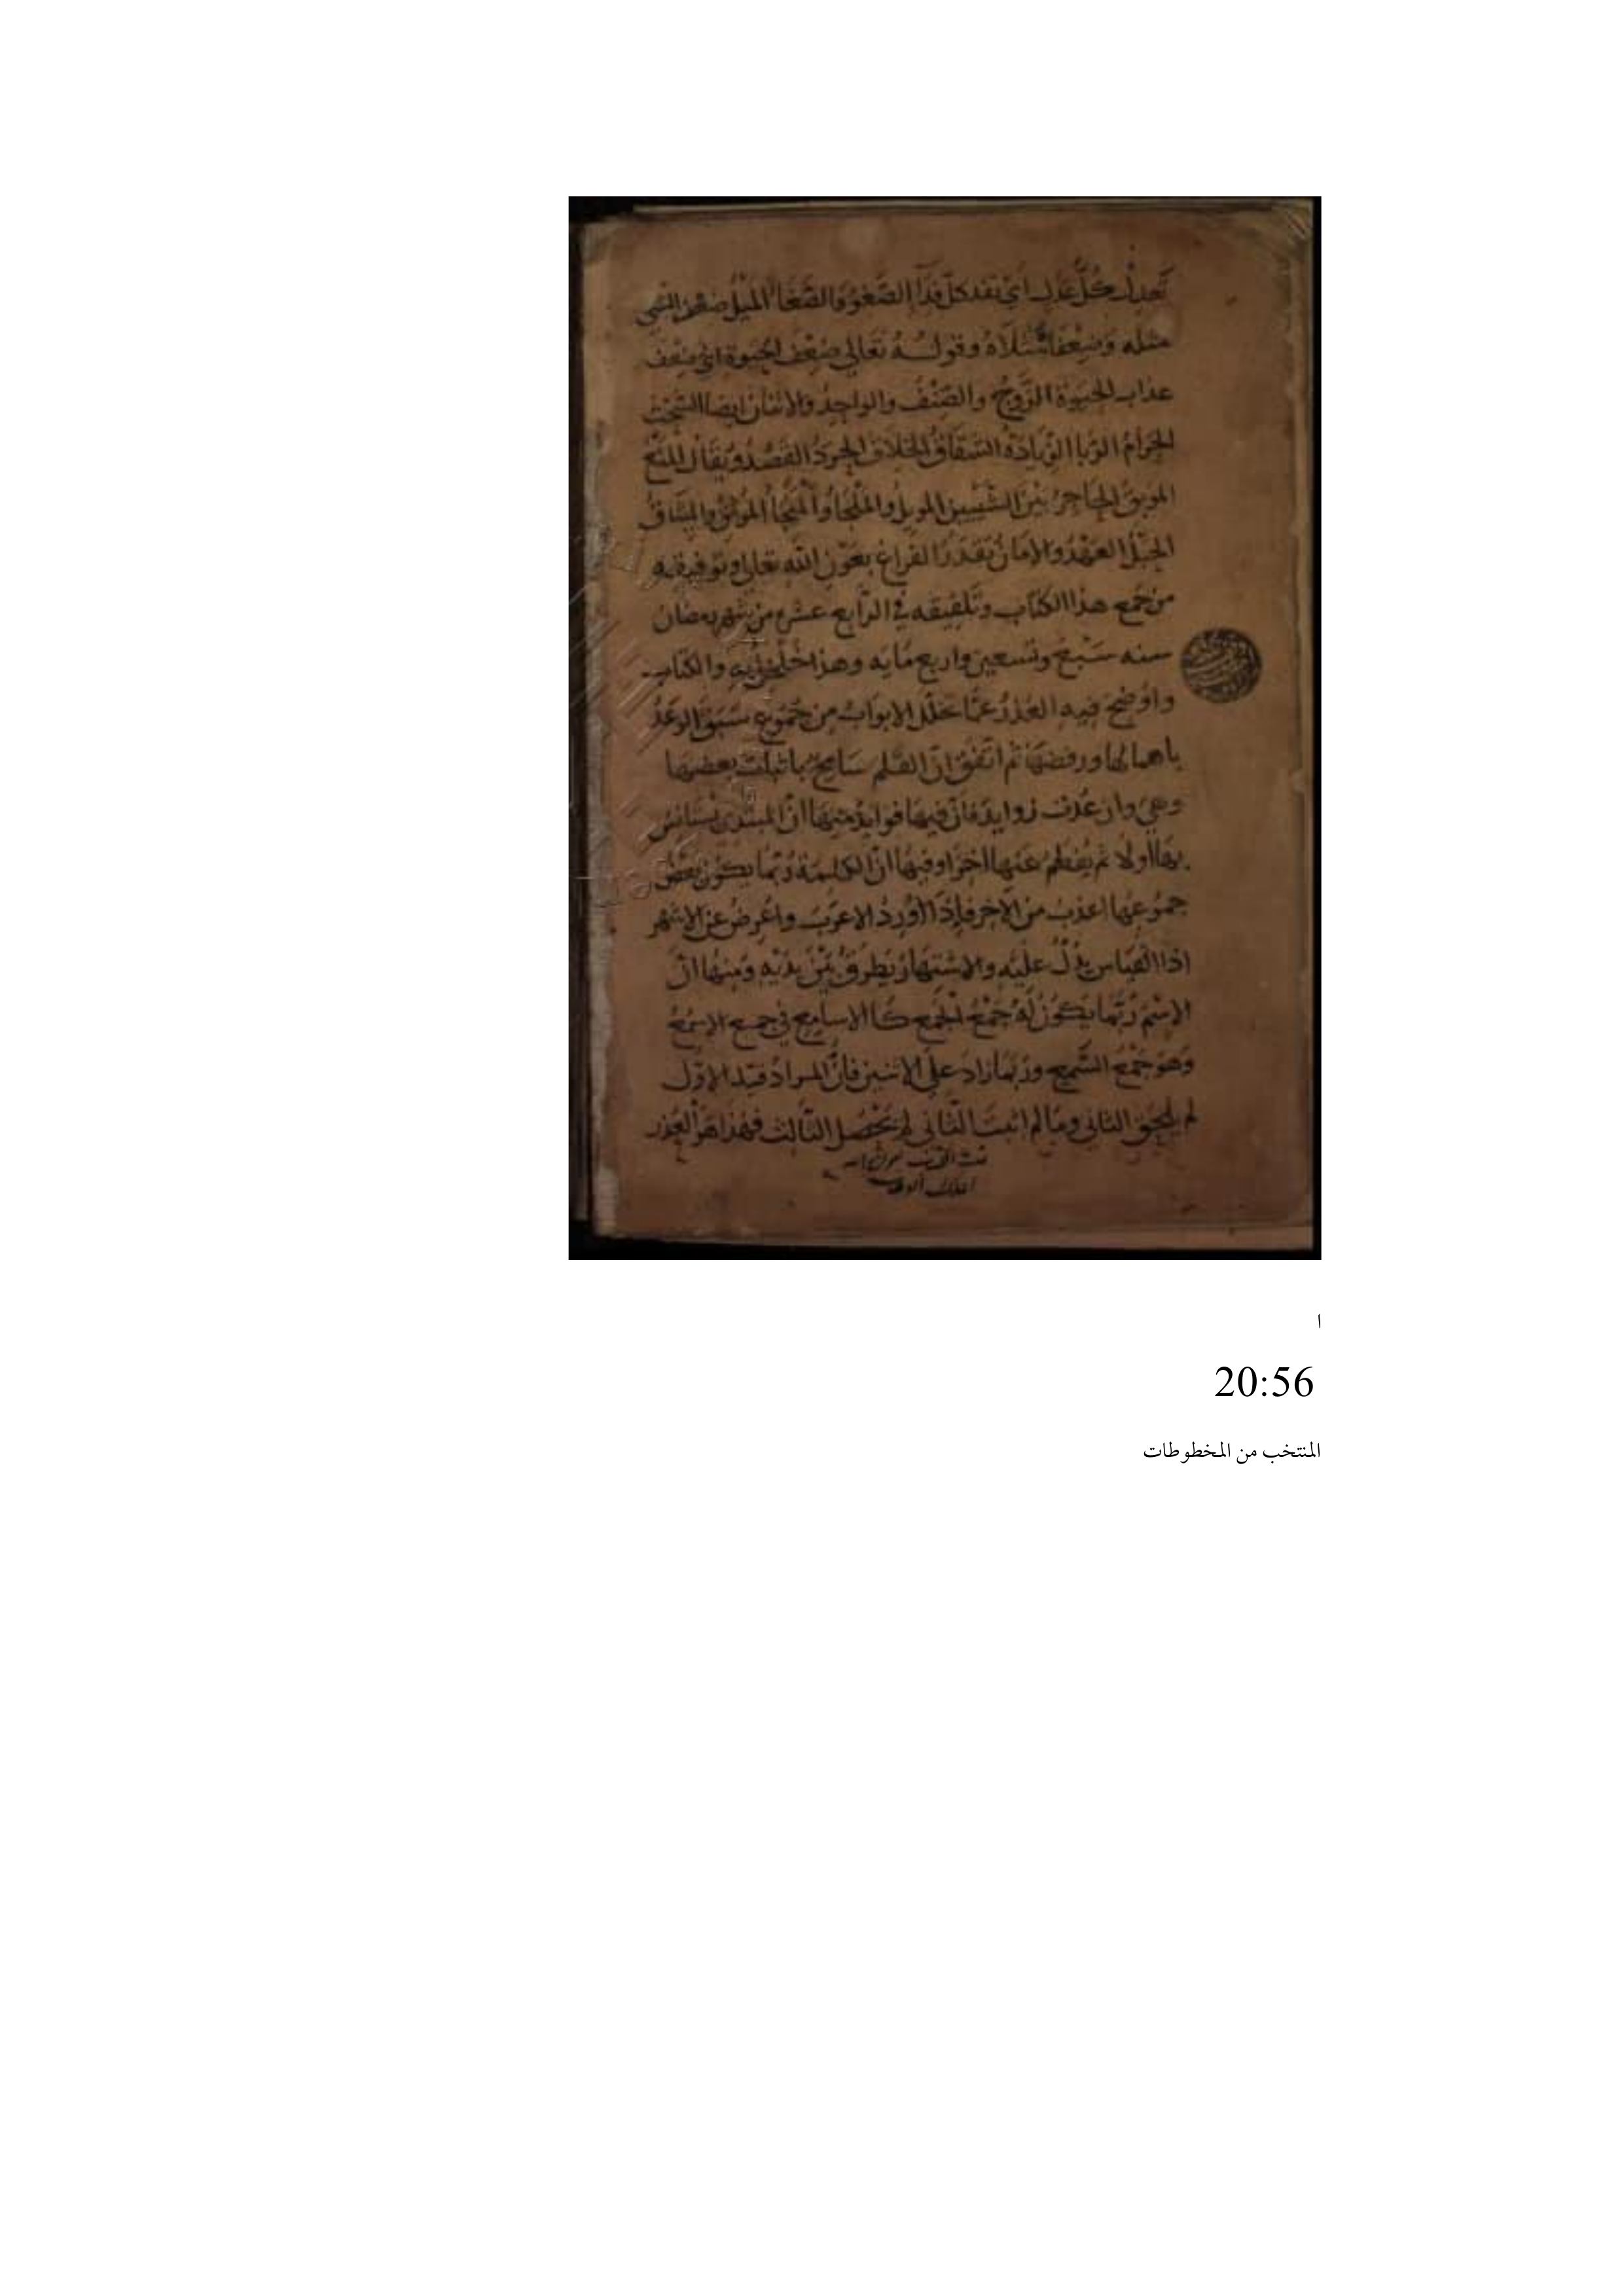 تعدل كل عدل اي تفد كل فدآ الصغو والصغا الميل ضعف الشي
مثله وضعفاه مثلاه وقوله تعالى ضعف الحيوة اي ضعف
عذاب الحيوة الزوج والصنف والواحد والاثنان ايضا السحت
الحرام الربا الزيادة الشقاق الخلاف الحرد القصد ويقال المنع
الموبق الحاجز بين الشيئين الموئل والملجا والمنجا الموثق والميثاق
الحبل العهد والامان تقدر الفراغ بعون الله تعالى وتوفيقه
من جمع هذا الكتاب وتلفيقه في الرابع عشر من شهر رمضان
سنه سبع وتسعين واربع مايه وهذا والكتاب
واوضح فيه العذر عما تخلل الابواب من جموع سبق الوعد
باهمالها ورفضها ثم اتفق ان القلم سامح باثبات بعضها
وهي وان عدت زوايد فان فيها فوايد منها ان المبتدي يستانس
بها اولا ثم يفطم عنها اخرا وفيها ان الكلمة ربما يكون بعض
جموعها اعذب من الاخر فاذا اورد الاعرب واعرض عن الاشهر
اذا القياس يدل عليه والاشتهار يطرق بين يديه ومنها ان
الاسم ربما يكون له جمع الجمع كالاسامع في جمع الاسمع
وهو جمع السمع وربما زاد على الاثنين فان المراد قيد الاول
لم يلحق الثاني وما لم اثبت الثاني لم يحصل الثالث فهذا هو العذر
ا
20:56
المنتخب من المخطوطات